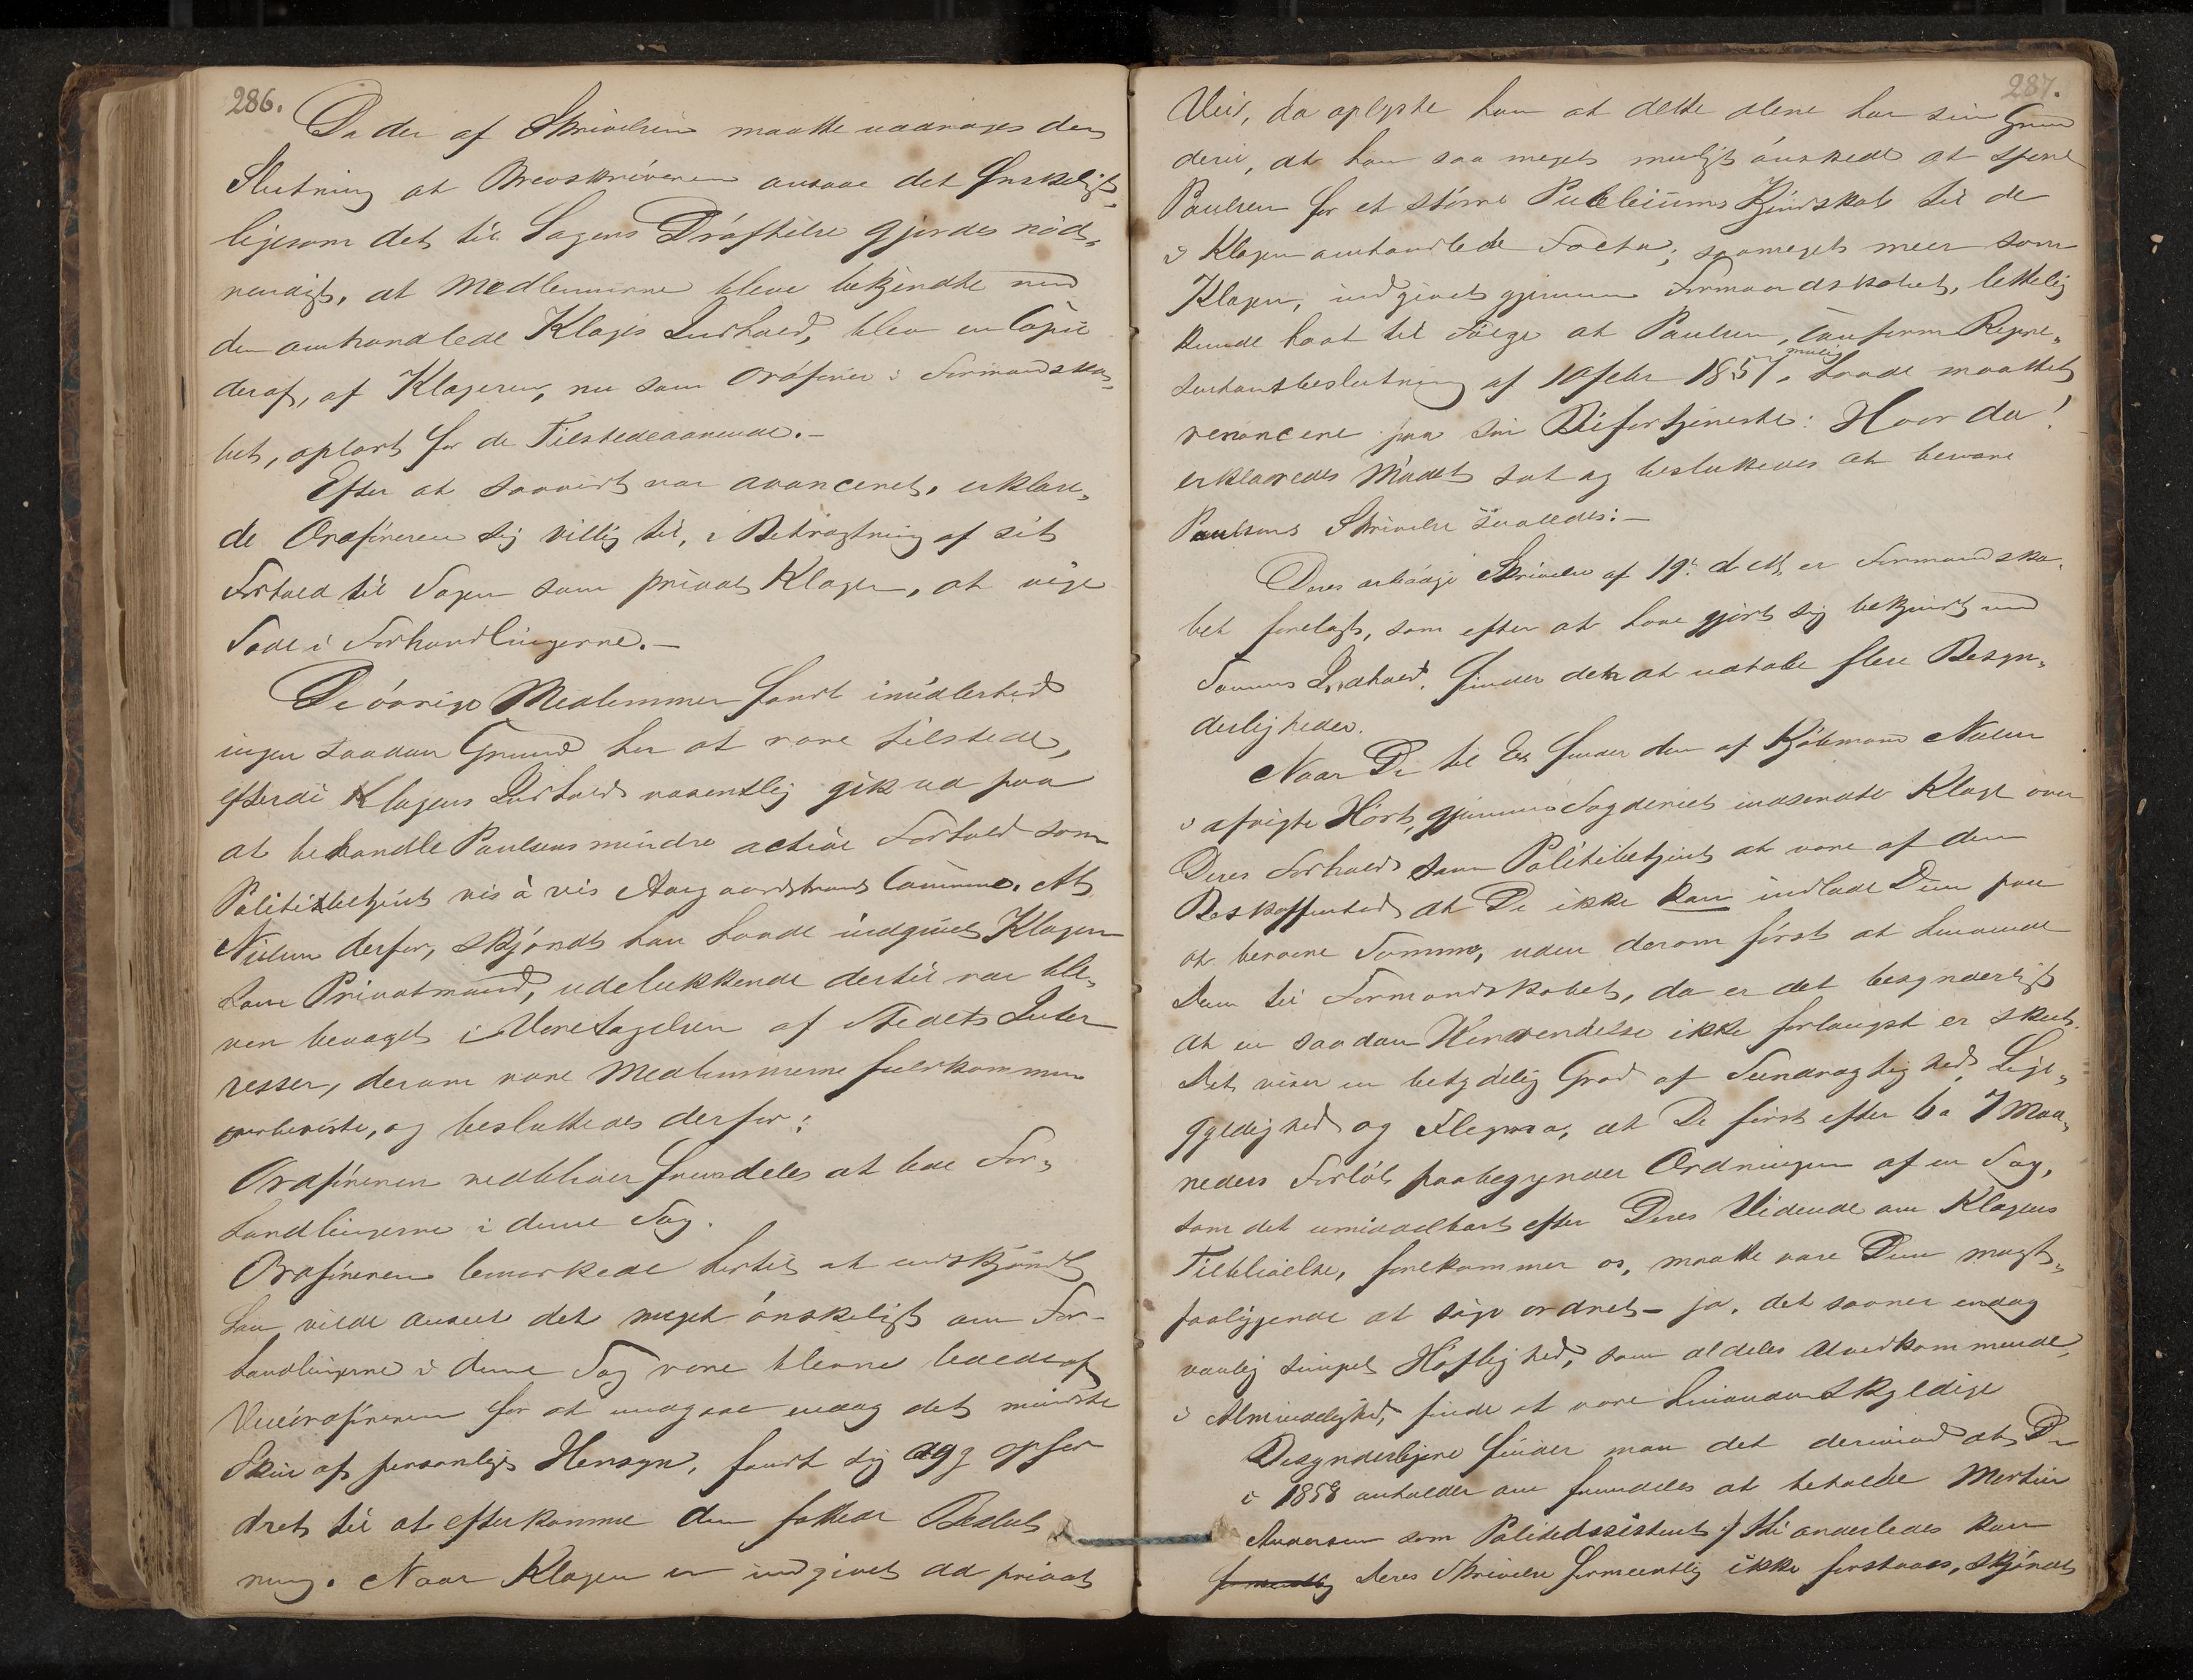 286.
Da der af Skrivelsen maatte uddrages den
Slutning at Brevskriveren ansaae det Ønskeligt,
ligesom det til Sagens Drøftelse gjordes nød-
vendigt, at Medlemmerne bleve bekjendte med
den omhandlede Klages Indhold, blev en Copie
deraf, af Klageren, nu som Ordfører i Formandska-
bet, oplæst for de Tilstedeværende.-
Efter at saavidt var avanceret, erklære-
de Ordføreren sig villig til, i Betragtning af sit
Forhold til Sagen som privat Klager, at vige
Sæde i Forhandlingerne.-
De øvrige Medlemmer fandt imidlertid
ingen saadan Grund her at være tilstede,
efterdi Klagens Indhold væsentlig gik ud paa
at behandle Paulsens mindre active Forhold som
Politibetjent vis à vis Aasgaardstrands Commune. At
Nielsen derfor, skjøndt han havde indgivet Klagen
som Privatmand, udelukkende dertil var ble-
ven bevæget i Varetagelsen af Stedets Inter
resser, derom vare Medlemmerne fuldkommen
overbeviste, og besluttedes derfor:
Ordføreren vedbliver fremdeles at lede For-
handlingerne i denne Sag.
Ordføreren bemærkede hertil at endskjøndt
han vilde anseet det meget ønskeligt om For-
handlingerne i denne Sag vare blevne ledede af
Viceordføreren for at undgaae endog det mindste
Skin af personligt Hensyn, fandt sig dog opfor
dret til at efterkomme den fattede Beslut
ning. Naar Klagen er indgivet ad privat
287.
Vei, da oplyste han at dette alene har sin Grund
deri, at han saa meget muligt ønskede at spare
Paulsen for et større Publicums Kjendskab til de
i Klagen omhandlede Facta; saameget meer som
Klagen, indgivet gjennem Formandskabet, lettelig
kunde havt til Følge at Paulsen, conform Repræ-
sentantbeslutning af 10 Febr 1857, mulig havde maattet
renoncere paa sin Bifortjeneste: Hvor da!
erklæredes Mødet sat og besluttedes at besvare
Paulsens Skrivelse saaledes:-
Deres ærbødige Skrivelse af 19. d M, er Formandska-
bet forelagt, som efter at have gjort sig bekjendt med
Sammes Indhold, finder den at udtale flere Besyn-
derligheder.
Naar De til Ex finder den af Kjøbmand Nielsen
i afvigte Høst, gjennem Fogderiet indsendte Klage over
Deres Forhold som Politibetjent at være af den
Beskaffenhed at De ikke kan indlade Dem paa
at besvare Samme, uden derom først at henvende
Dem til Formandskabet, da er det besynderligt
at en saadan Henvendelse ikke forlængst er skeet.
Det viser en betydelig Grad af Seendrægtighed, Lige-
gyldighed og Flegma, at De først efter 6 a 7 Maa-
neders Forløb paabegynder Ordningen af en Sag,
som det umiddelbart efter Deres Vidende om Klagens
Tilblivelse, forekommer os, maatte være Dem magt-
paaliggende at søge ordnet - ja, det savner endog
vanlig simpel Høflighed, som aldeles Uvedkommende,
i Almindelighed, finde at være hinanden skyldige
Besynderligere finder man det derimod at De
i 1858 anholder om fremdeles at beholde Martin
Andersen som Politiassistent; thi anderledes kan
formentlig Deres Skrivelse formeentlig ikke forstaaes, skjøndt